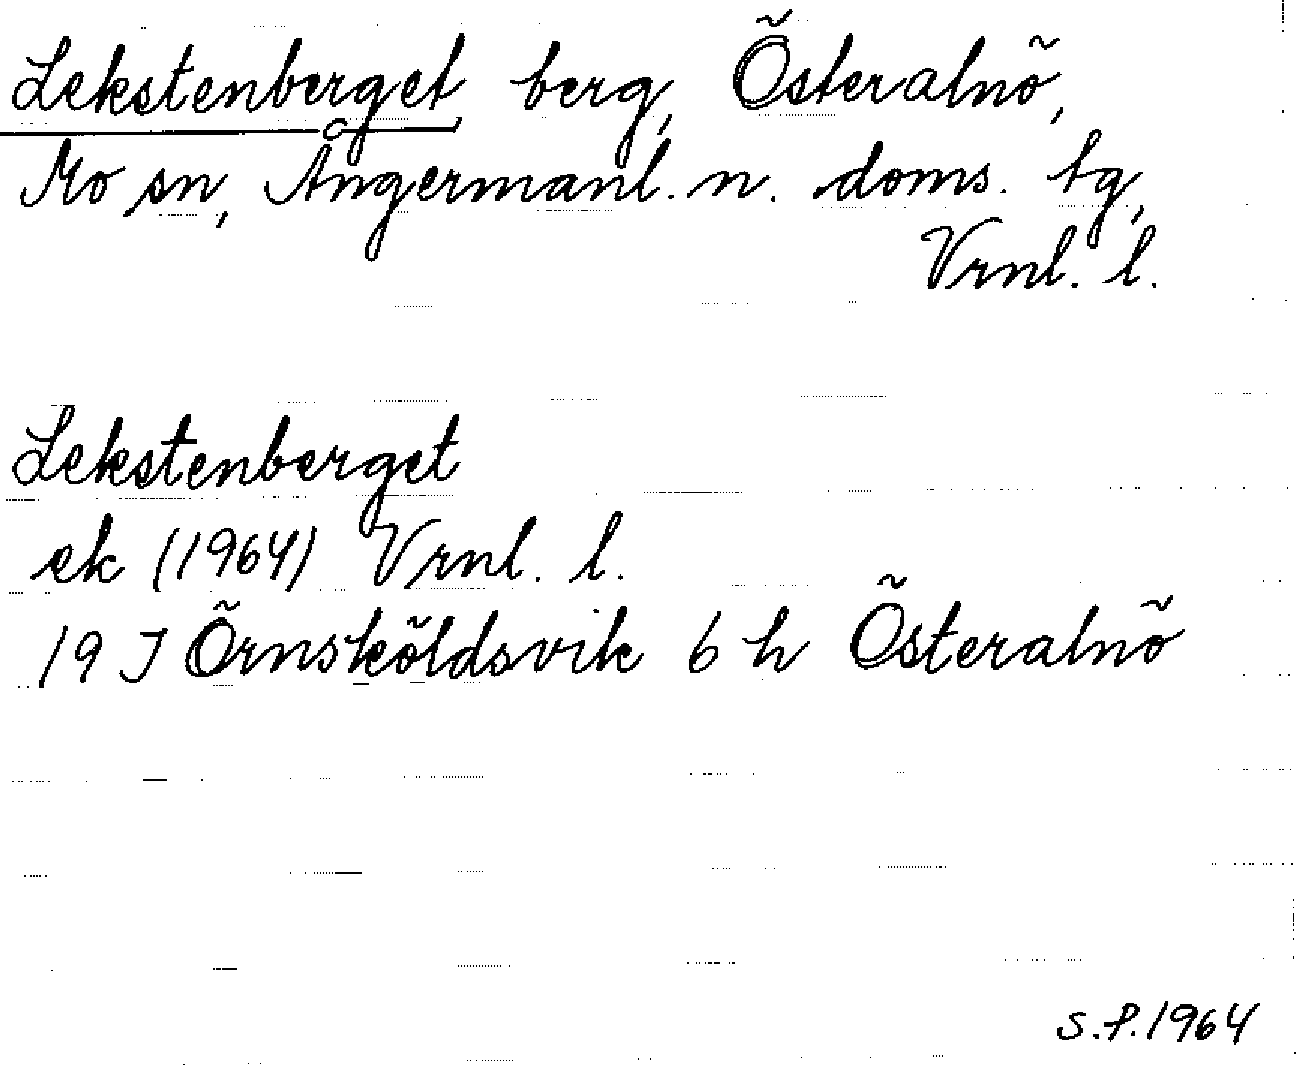 Lekstenberget berg, Österalnö,
Mo sn, Ångermanl. n. doms. tg,
Vrnl. l.
Lekstenberget
ek (1964) Vrnl. l.
19 J Örnsköldsvik 6 h Österalnö
S.P. 1964